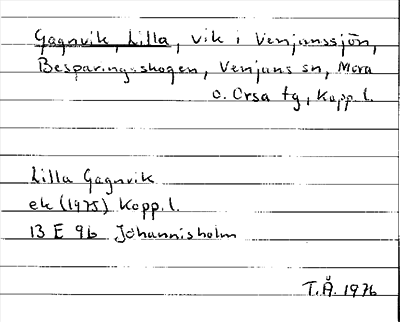 Gagnvik, Lilla, vik i Venjanssjön,
Besparingsskogen, Venjans sn, Mora
o. Orsa tg, Kopp. l.
Lilla Gagnvik
ek (1975) Kopp. l.
13 E 9b Johannisholm
T.Å. 1976